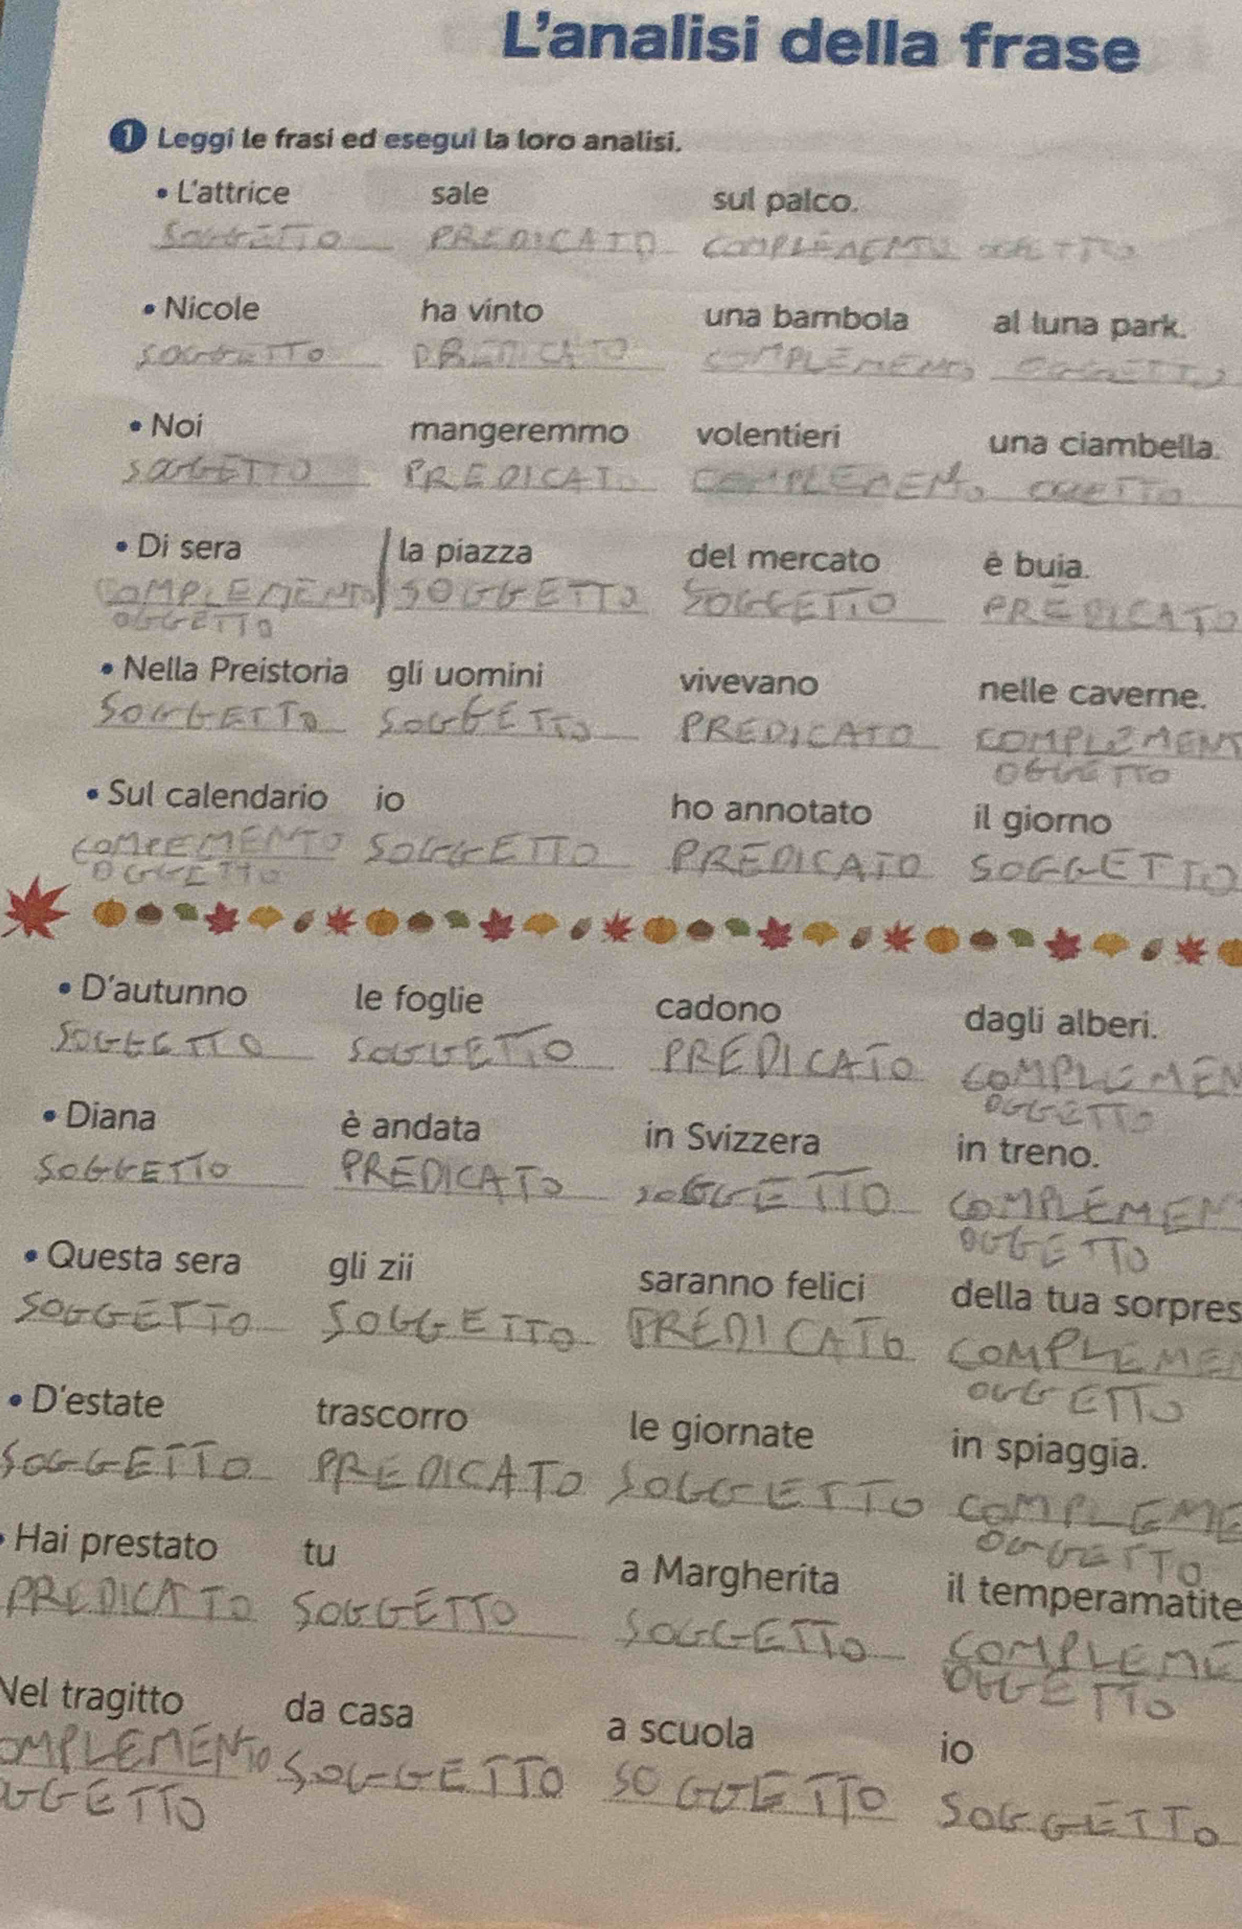 L'analisi della frase
1 Leggi le frasi ed esegui la loro analisi.
• L'attrice sale sul palco.
SOGGETTO PREDICATO COMPLEMENTO OGGETTO
• Nicole ha vinto una bambola al luna park.
SOGGETTO PREDICATO COMPLEMENTO OGGETTO
• Noi mangeremmo volentieri una ciambella.
SOGGETTO PREDICATO COMPLEMENTO OGGETTO
• Di sera la piazza del mercato è buia.
COMPLEMENTO SOGGETTO SOGGETTO PREDICATO
OGGETTO
• Nella Preistoria gli uomini vivevano nelle caverne.
SOGGETTO SOGGETTO PREDICATO COMPLEMENT
OGGETTO
• Sul calendario io ho annotato il giorno
COMPEMENTO SOGGETTO PREDICATO SOGGETTO
OGGETTO
• D'autunno le foglie cadono dagli alberi.
SOGGETTO SOGGETTO PREDICATO COMPLEMEN
OGGETTO
• Diana è andata in Svizzera in treno.
SOGGETTO PREDICATO SOGGETTO COMPLEMEN
OGGETTO
• Questa sera gli zii saranno felici della tua sorpres
SOGGETTO SOGGETTO PREDICATO COMPLEMEN
OGGETTO
• D'estate trascorro le giornate in spiaggia.
SOGGETTO PREDICATO SOGGETTO COMPLEME
OGGETTO
• Hai prestato tu a Margherita il temperamatite
PREDICATO SOGGETTO SOGGETTO COMPLEME
OGGETTO
Nel tragitto da casa a scuola io
OMPLEMENTO SOGGETTO SOGGETTO SOGGETTO
OGGETTO